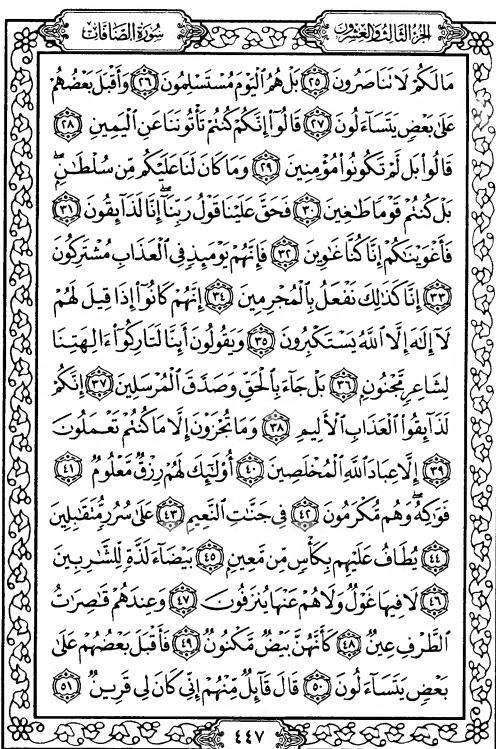 الجزء الثالث والعشرون
سورة الصافات
مَا لَكُمْ لَا تَنَاصَرُونَ ٢٥ بَلْ هُمُ ٱلْيَوْمَ مُسْتَسْلِمُونَ ٢٦ وَأَقْبَلَ بَعْضُهُمْ
عَلَىٰ بَعْضٍ يَتَسَآءَلُونَ ٢٧ قَالُوٓا۟ إِنَّكُمْ كُنتُمْ تَأْتُونَنَا عَنِ ٱلْيَمِينِ ٢٨
قَالُوا۟ بَل لَّمْ تَكُونُوا۟ مُؤْمِنِينَ ٢٩ وَمَا كَانَ لَنَا عَلَيْكُم مِّن سُلْطَٰنٍۭ ۖ
بَلْ كُنتُمْ قَوْمًا طَٰغِينَ ٣٠ فَحَقَّ عَلَيْنَا قَوْلُ رَبِّنَآ ۖ إِنَّا لَذَآئِقُونَ ٣١
فَأَغْوَيْنَٰكُمْ إِنَّا كُنَّا غَٰوِينَ ٣٢ فَإِنَّهُمْ يَوْمَئِذٍ فِى ٱلْعَذَابِ مُشْتَرِكُونَ
٣٣ إِنَّا كَذَٰلِكَ نَفْعَلُ بِٱلْمُجْرِمِينَ ٣٤ إِنَّهُمْ كَانُوٓا۟ إِذَا قِيلَ لَهُمْ
لَآ إِلَٰهَ إِلَّا ٱللَّهُ يَسْتَكْبِرُونَ ٣٥ وَيَقُولُونَ أَئِنَّا لَتَارِكُوٓا۟ ءَالِهَتِنَا
لِشَاعِرٍ مَّجْنُونٍۭ ٣٦ بَلْ جَآءَ بِٱلْحَقِّ وَصَدَّقَ ٱلْمُرْسَلِينَ ٣٧ إِنَّكُمْ
لَذَآئِقُوا۟ ٱلْعَذَابِ ٱلْأَلِيمِ ٣٨ وَمَا تُجْزَوْنَ إِلَّا مَا كُنتُمْ تَعْمَلُونَ
٣٩ إِلَّا عِبَادَ ٱللَّهِ ٱلْمُخْلَصِينَ ٤٠ أُو۟لَٰٓئِكَ لَهُمْ رِزْقٌ مَّعْلُومٌ ٤١
فَوَٰكِهُ ۖ وَهُم مُّكْرَمُونَ ٤٢ فِى جَنَّٰتِ ٱلنَّعِيمِ ٤٣ عَلَىٰ سُرُرٍ مُّتَقَٰبِلِينَ
٤٤ يُطَافُ عَلَيْهِم بِكَأْسٍ مِّن مَّعِينٍۭ ٤٥ بَيْضَآءَ لَذَّةٍ لِّلشَّٰرِبِينَ
٤٦ لَا فِيهَا غَوْلٌ وَلَا هُمْ عَنْهَا يُنزَفُونَ ٤٧ وَعِندَهُمْ قَٰصِرَٰتُ
ٱلطَّرْفِ عِينٌ ٤٨ كَأَنَّهُنَّ بَيْضٌ مَّكْنُونٌ ٤٩ فَأَقْبَلَ بَعْضُهُمْ عَلَىٰ
بَعْضٍ يَتَسَآءَلُونَ ٥٠ قَالَ قَآئِلٌ مِّنْهُمْ إِنِّى كَانَ لِى قَرِينٌ ٥١
٤٤٧